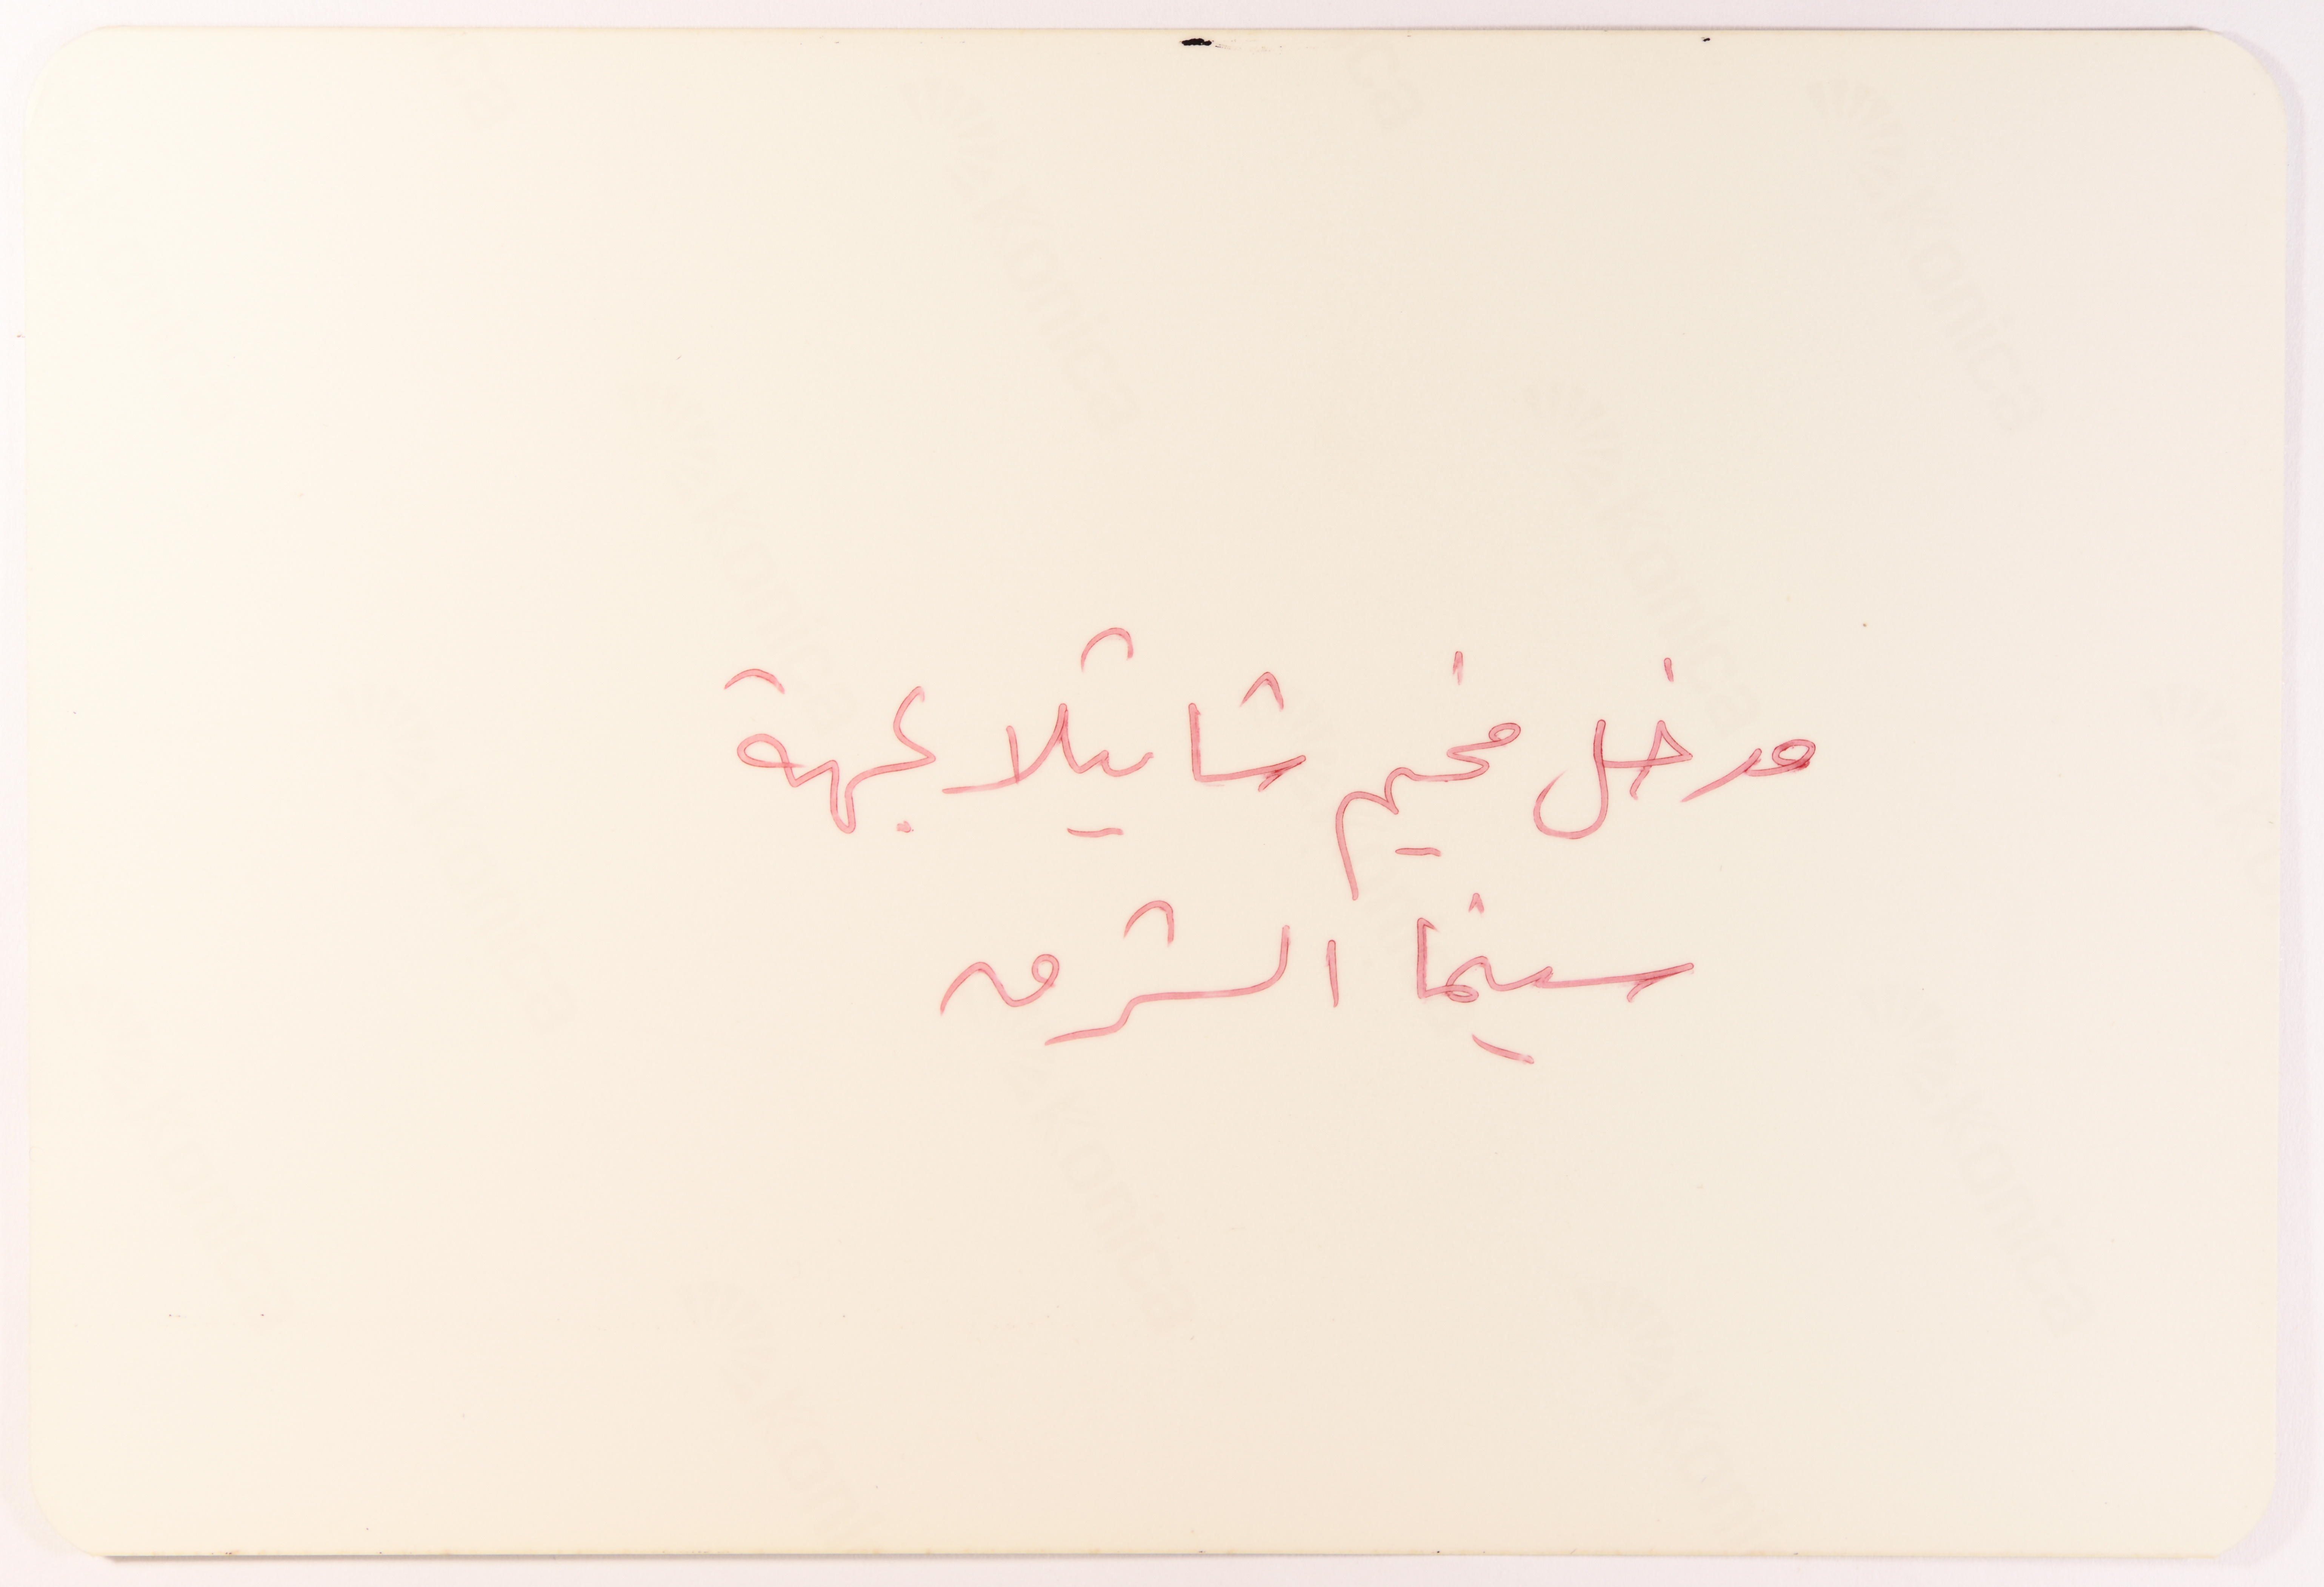 مدخل مخيم شاتيلا جهة
سينما الشرق